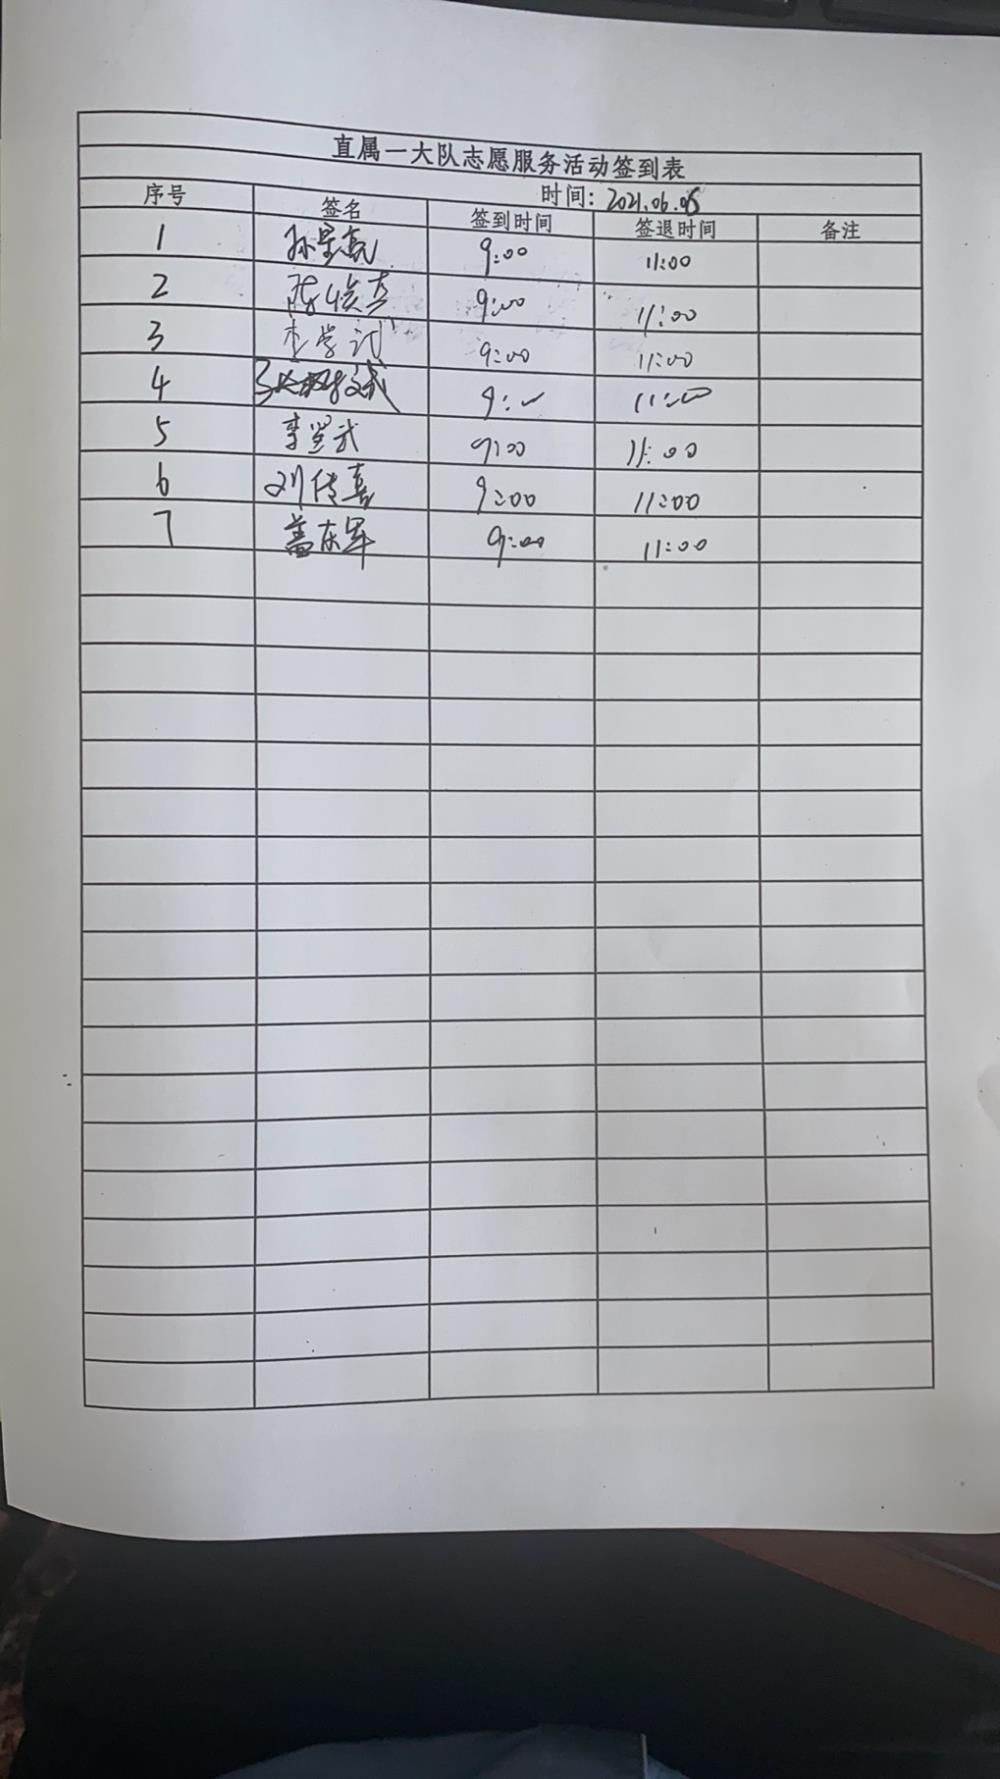 直属一大队志愿服务活动签到表
时间: 2021.06.05
序号 签名 签到时间 签退时间 备注
1 孙景亮 9:00 11:00
2 9:00 11:00
3 李学武 9:00 11:00
4 9: 11:00
5 李学武 9:00 11:00
6 刘传喜 9:00 11:00
7 盖东军 9:00 11:00